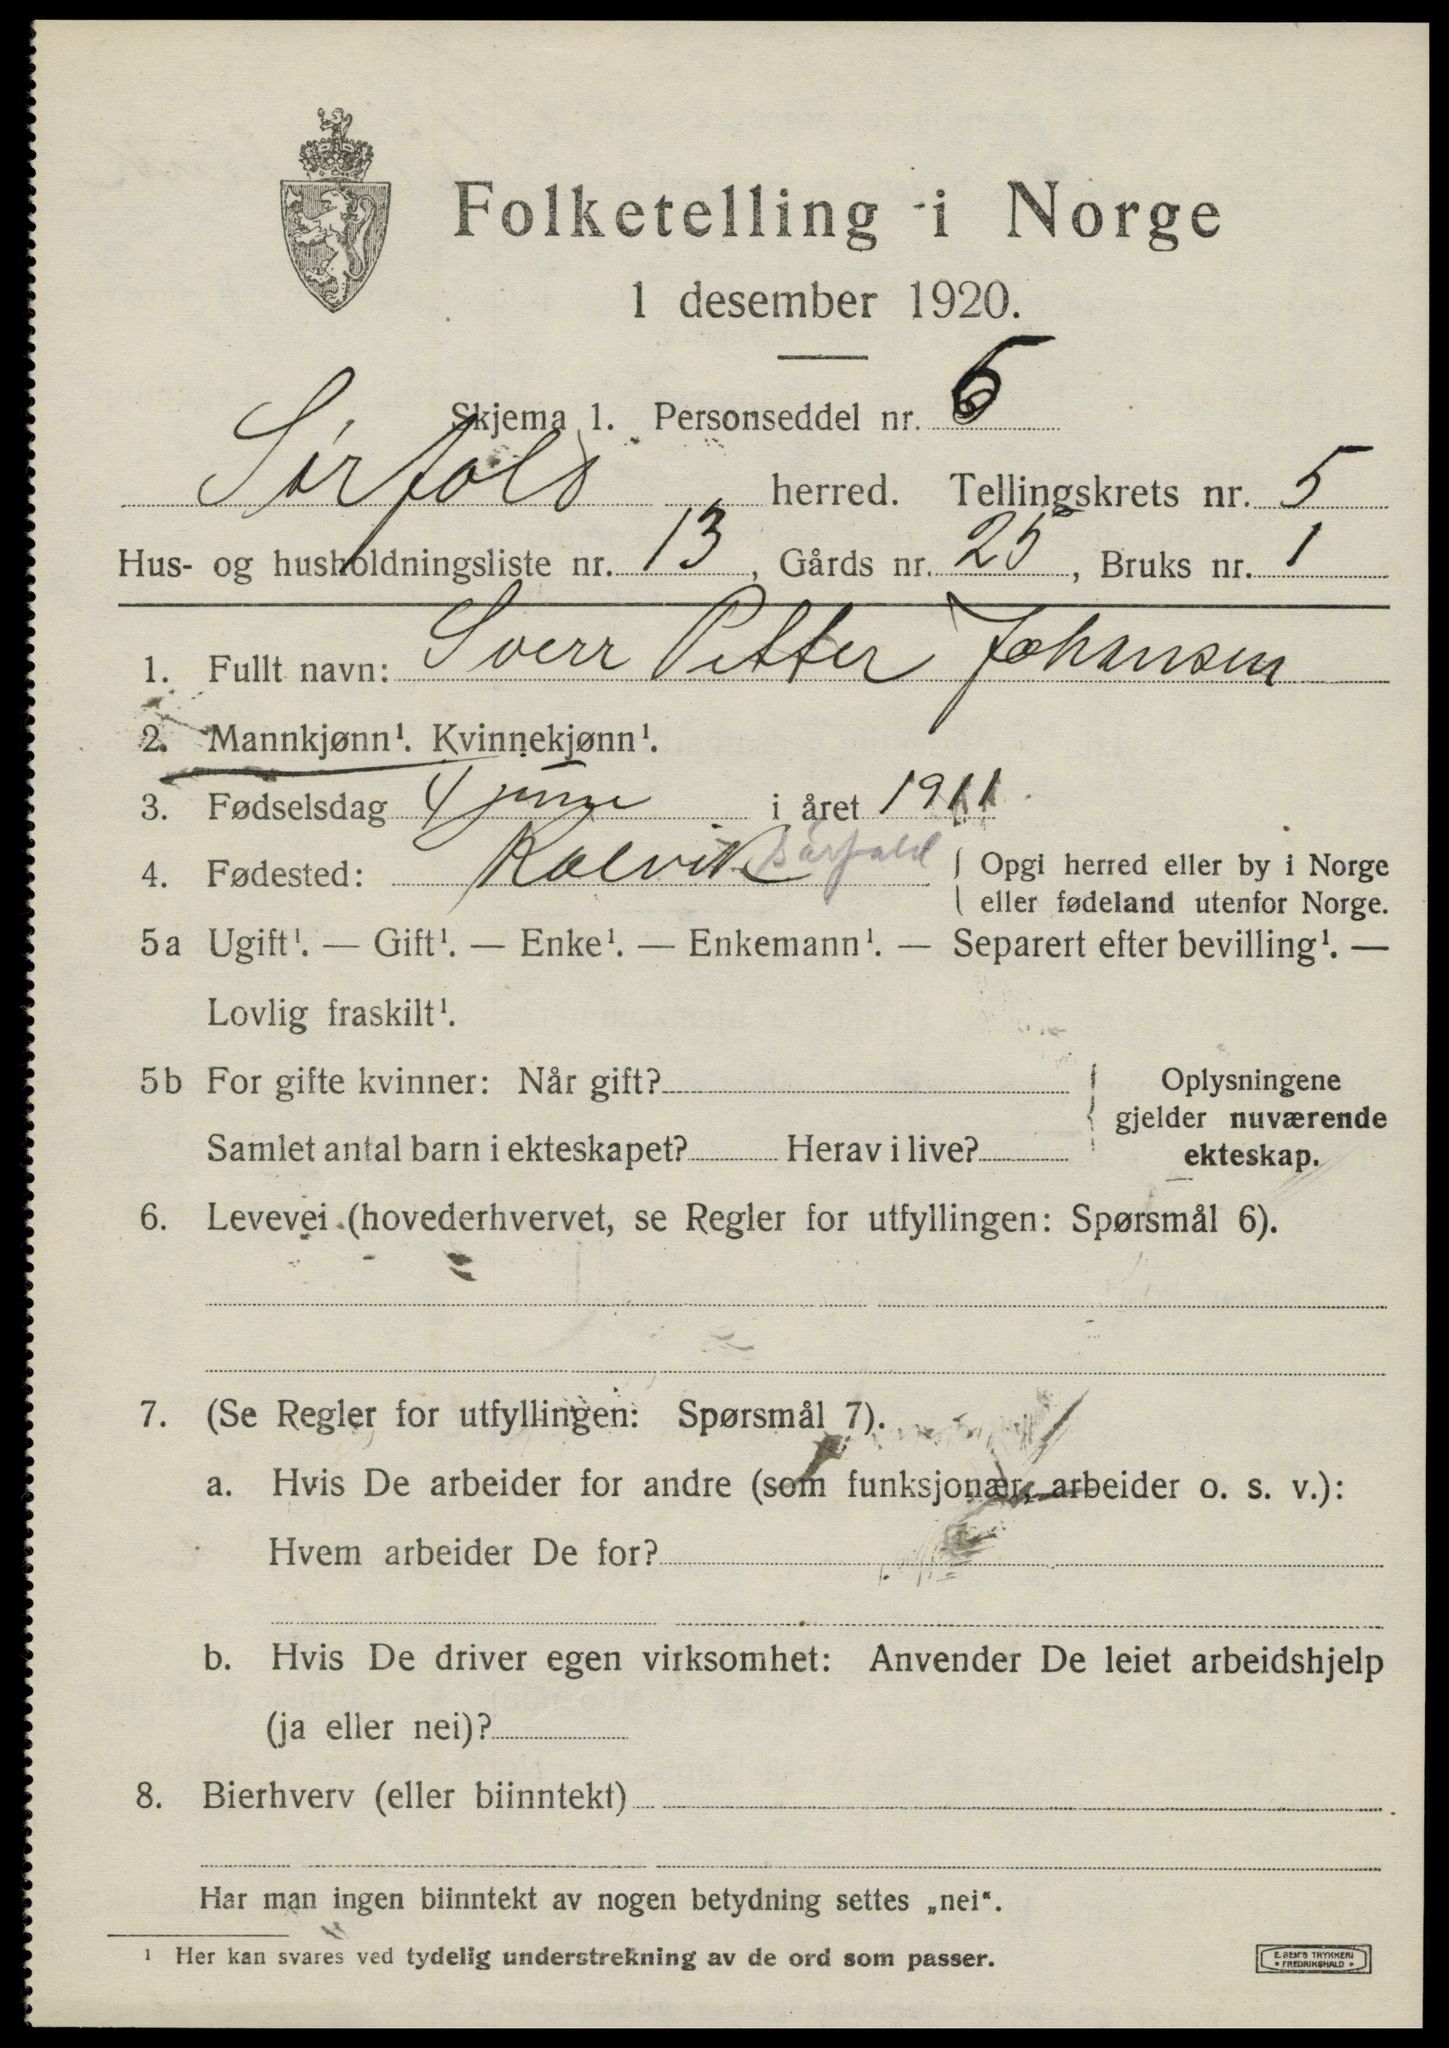 Folketelling i Norge
1 desember 1920.
Skjema 1. Personseddel nr. 6
Sørfold herred. Tellingskrets nr. 5
Hus- og husholdningsliste nr. 13, Gårds nr. 25, Bruks nr. 1
1. Fullt navn: Sverr Petter Johansen
2. Mannkjønn¹. Kvinnekjønn¹.
3. Fødselsdag 4 june i året 1911
4. Fødested: Kolvik Sørfold
Opgi herred eller by i Norge
eller fødeland utenfor Norge.
5a Ugift¹. — Gift¹. — Enke¹. — Enkemann¹. — Separert efter bevilling¹. —
Lovlig fraskilt¹.
5b For gifte kvinner: Når gift?
Samlet antal barn i ekteskapet? Herav i live?
Oplysningene
gjelder nuværende
ekteskap.
6. Levevei (hovederhvervet, se Regler for utfyllingen: Spørsmål 6).
7. (Se Regler for utfyllingen: Spørsmål 7).
a. Hvis De arbeider for andre (som funksjonær, arbeider o. s. v.):
Hvem arbeider De for?
b. Hvis De driver egen virksomhet: Anvender De leiet arbeidshjelp
(ja eller nei)?
8. Bierhverv (eller biinntekt)
Har man ingen biinntekt av nogen betydning settes „nei“.
¹ Her kan svares ved tydelig understrekning av de ord som passer.
E. SEM'S TRYKKERI
• FREDRIKSHALD •